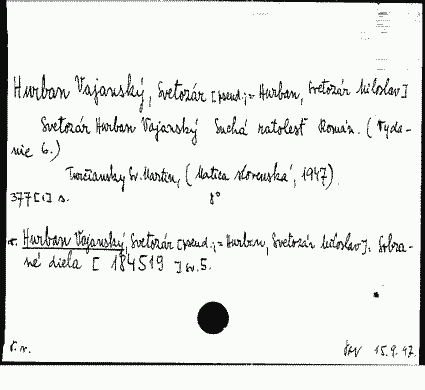 Hurban Vajanský, Svetozár [pseud.; = Hurban, Svetozár Miloslav]
Svetozár Hurban Vajanský Suchá ratolesť Román. (Vyda-
nie 6.)
Turčiansky Sv. Martin, (Matica slovenská, 1947).
377 [1] s. 8°
Hurban Vajanský, Svetozár [pseud.; = Hurban, Svetozár Miloslav]: Sobra-
né diela [ 184519 ] sv. 5.
15.9.47.